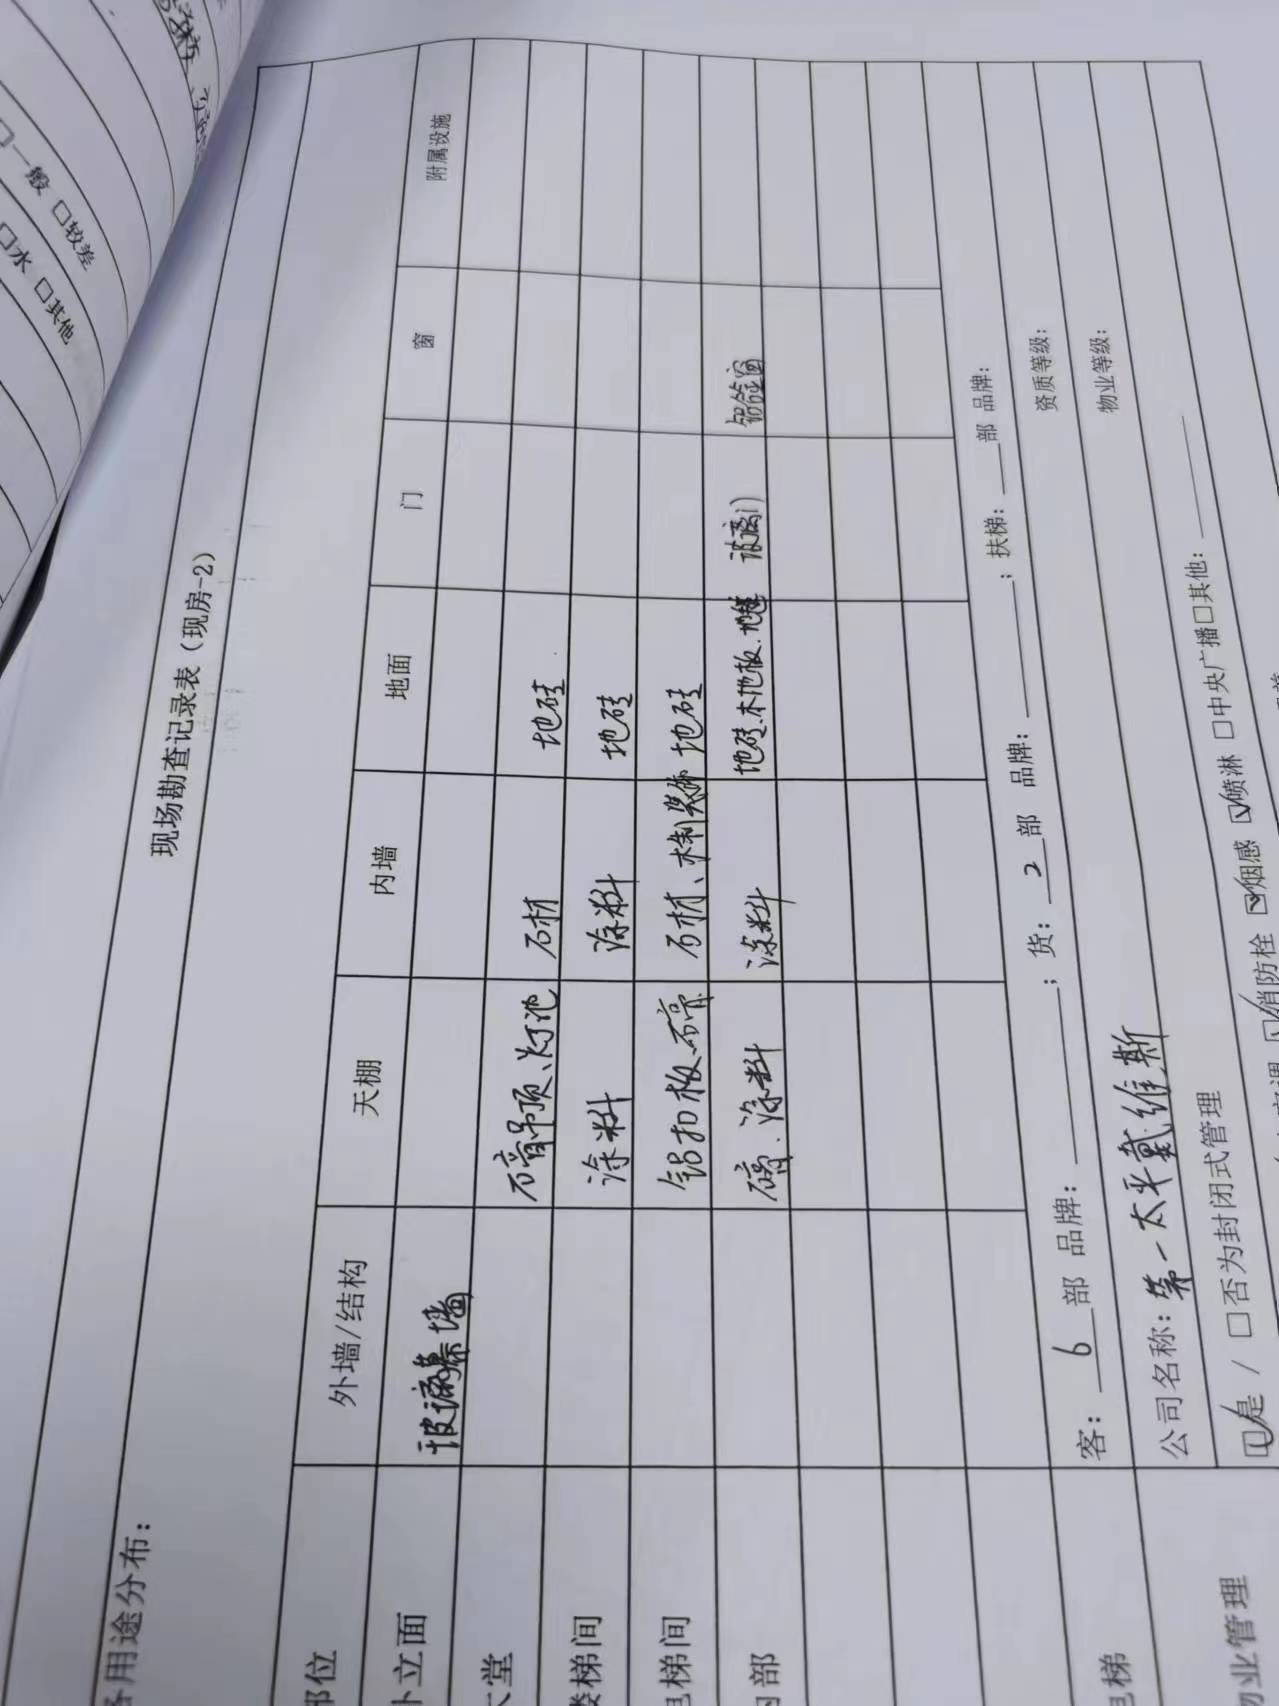 现场勘查记录表（现房-2）
各用途分布：
部位 外墙/结构 天棚 内墙 地面 门 窗 附属设施
外立面 玻璃幕墙
大堂 石膏吊顶、灯池 石材 地砖
楼梯间 涂料 涂料 地砖
电梯间 铝扣板、石膏 石材、木制装饰 地砖
内部 石膏、涂料 涂料 地砖、木地板、地毯 玻璃门 铝合金窗
电梯 客：6部 品牌：；货：2部 品牌：；扶梯：部 品牌：
公司名称：第一太平戴维斯 资质等级：
物业管理 ☑是 / □否为封闭式管理 物业等级：
☑消防栓 ☑烟感 ☑喷淋 □中央广播 □其他：
□一般 □较差
□水 □其他